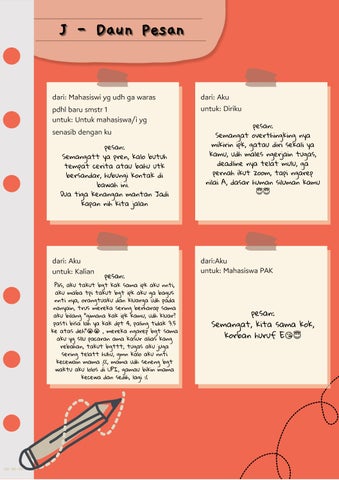 J - Daun Pesan
dari: Mahasiswi yg udh ga waras
pdhl baru smstr 1
untuk: Untuk mahasiswa/i yg
senasib dengan ku
pesan:
Semangatt ya pren, kalo butuh
tempat cerita atau bahu utk
bersandar, hubung kontak di
bawah ini.
Dua tiga kenangan mantan Jadi
kapan nih kita jalan
dari: Aku
untuk: Diriku
pesan:
Semangat overthingking nya
mikirin ipk, gatau diri sekali ya
kamu, udh males ngerjain tugas,
deadline nya telat mulu, ga
pernah ikut zoom, tapi ngarep
nilai A, dasar human siluman kamu
😇😇
dari: Aku
untuk: Kalian
pesan:
Pas, aku takut bgt kak sama ipk aku nnti,
aku maba tpi takut bgt ipk aku ga bagus
nnti nya, orangtuaku dan kluarga udh pada
nanyain, trus mereka sering berharap sama
aku bilang "gimana kak ipk kamu, udh kluar?
pasti bisa lah ya kak dpt 4, paling tidak 3.5
ke atas deh"😭😭 , mereka ngarep bgt sama
aku yg slu pacaran ama kasur alias kang
rebahan, takut bgttt, tugas aku juga
sering telatt huhu, gmn kalo aku nnti
kecewain mama :((, mama udh seneng bgt
waktu aku lolos di UPI, gamau bikin mama
kecewa dan sedih, lagi :(
dari:Aku
untuk: Mahasiswa PAK
pesan:
Semangat, kita sama kok,
korban huruf E😘😇